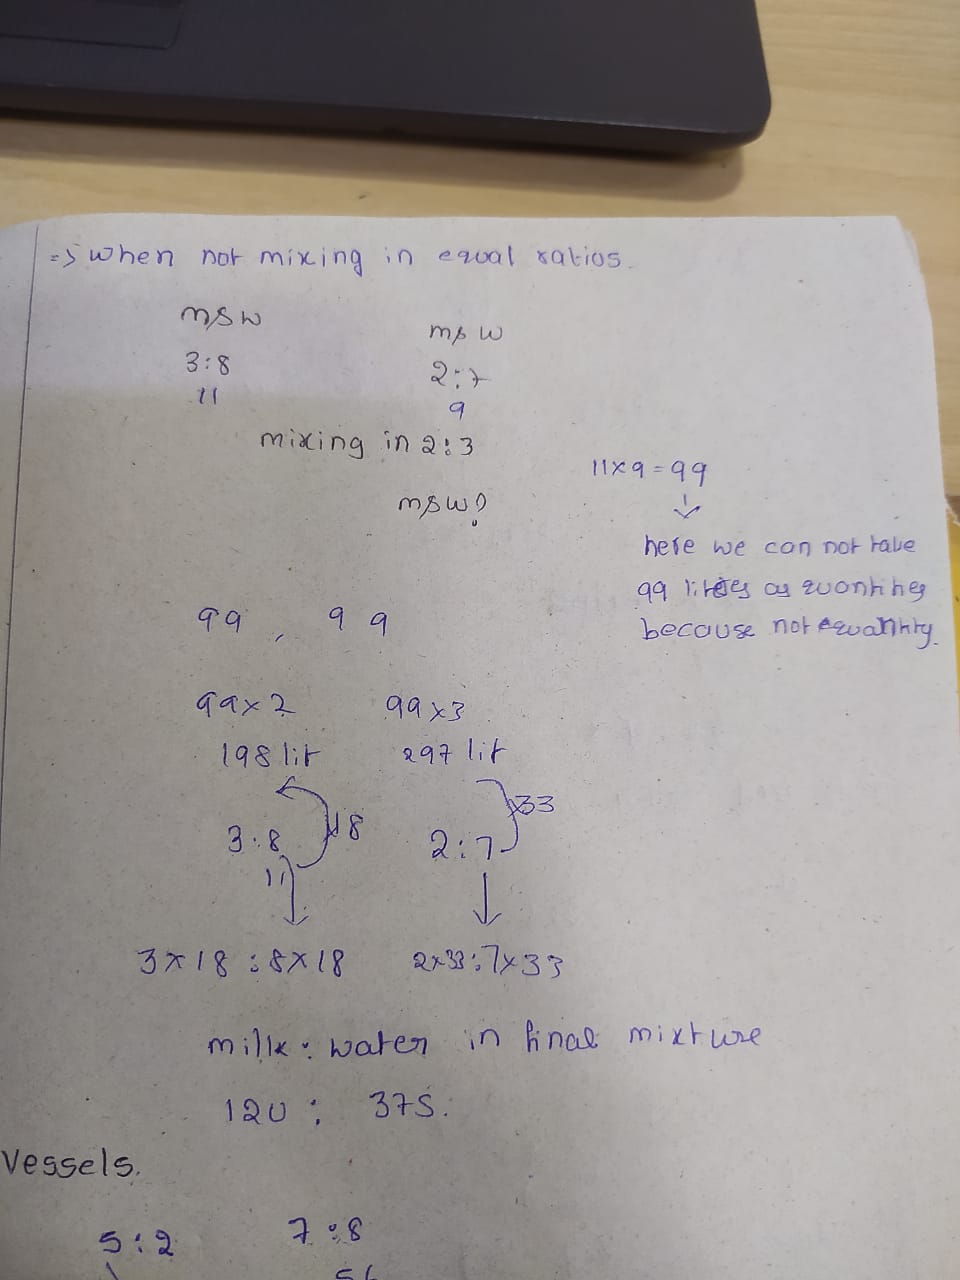 => when not mixing in equal ratios.
m & w m & w
3:8 2:7
11 9
mixing in 2:3
11x9=99
m & w?
here we can not take
99 liters as quantities
because not equantity.
99 , 99
99x2 99x3
198 lit 297 lit
3:8 18 2:7 33
11
3x18 : 8x18 2x33:7x33
milk : water in final mixture
120 : 375.
Vessels.
5:2 7:8
56